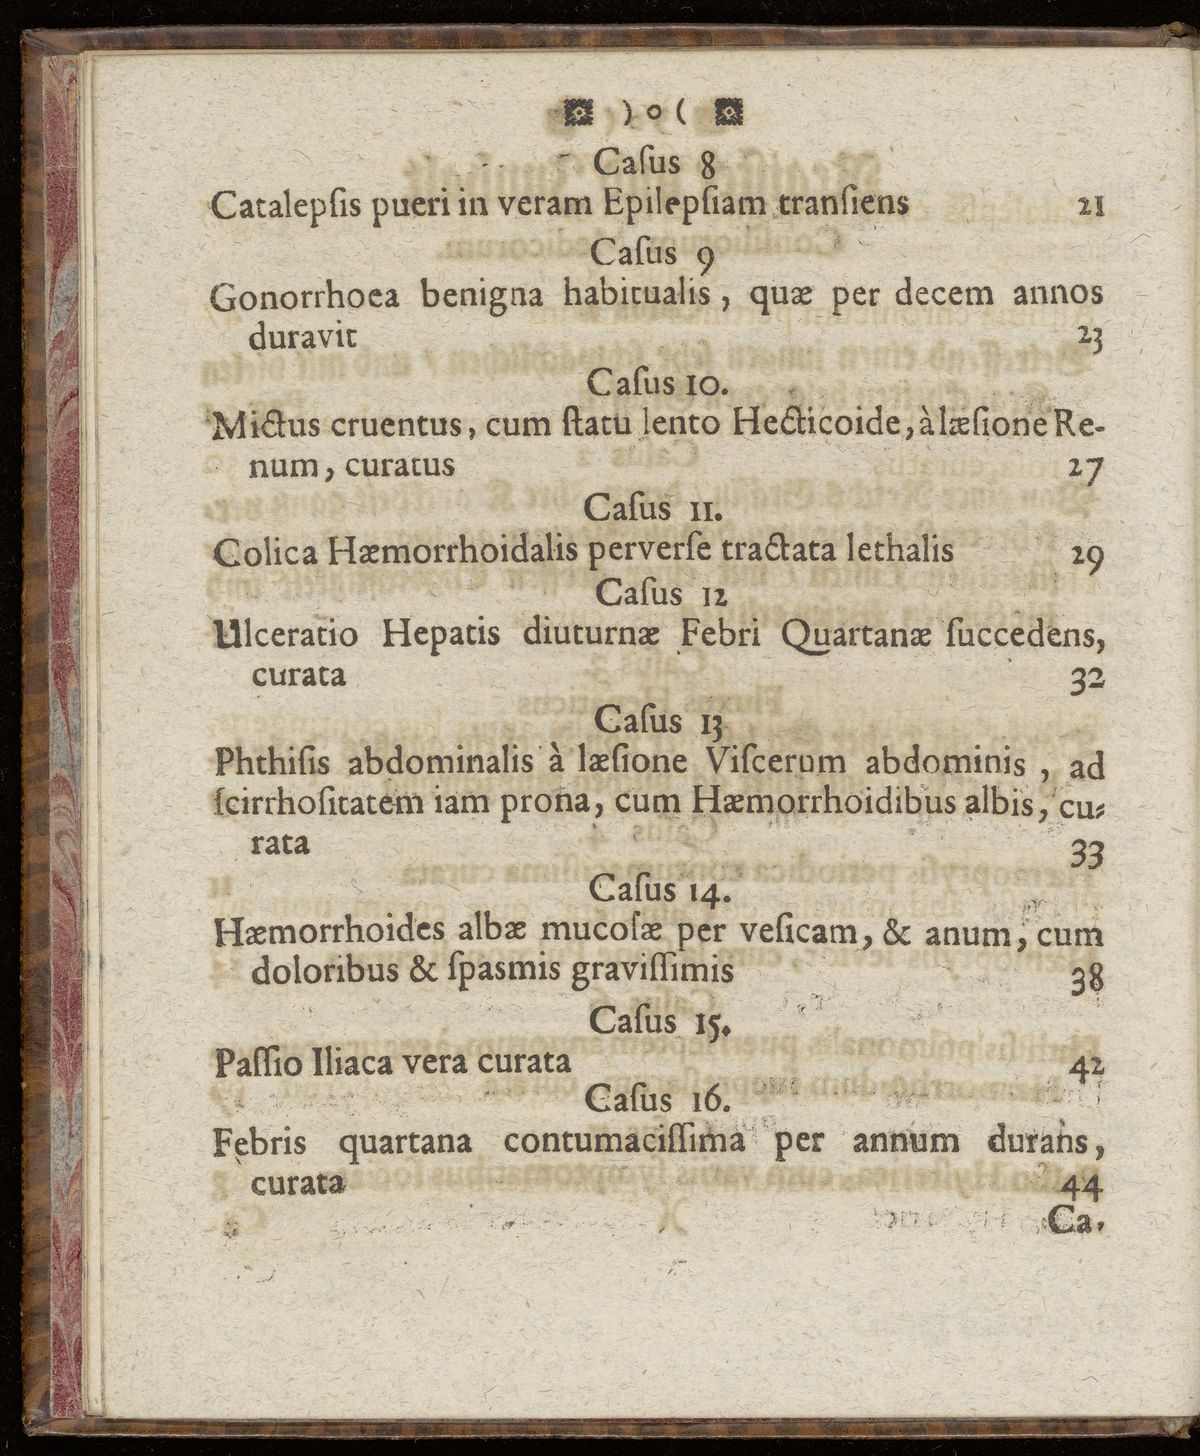 ) o (
Caſus 8
Catalepſis pueri in veram Epilepſiam tranſiens 21
Caſus 9
Gonorrhoea benigna habitualis, quæ per decem annos
duravit 23
Caſus 10.
Mictus cruentus, cum ſtatu lento Hecticoide, à læſione Re-
num, curatus 27
Caſus 11.
Colica Hæmorrhoidalis perverſe tractata lethalis 29
Caſus 12
Ulceratio Hepatis diuturnæ Febri Quartanæ ſuccedens,
curata 32
Caſus 13
Phthiſis abdominalis à læſione Viſcerum abdominis, ad
ſcirrhoſitatem iam prona, cum Hæmorrhoidibus albis, cu⸗
rata 33
Caſus 14.
Hæmorrhoides albæ mucoſæ per veſicam, & anum, cum
doloribus & ſpasmis graviſſimis 38
Caſus 15.
Paſſio Iliaca vera curata 42
Caſus 16.
Febris quartana contumaciſſima per annum durans,
curata 44
Ca.